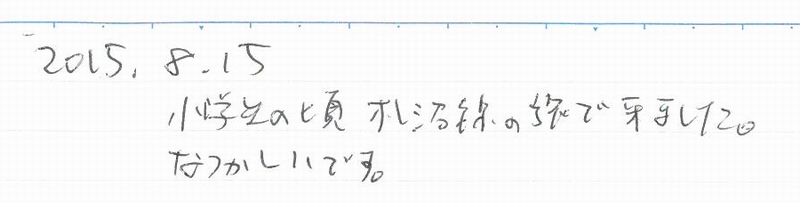 2015. 8.15
小学生の頃 札沼線の旅で来ました。
なつかしいです。